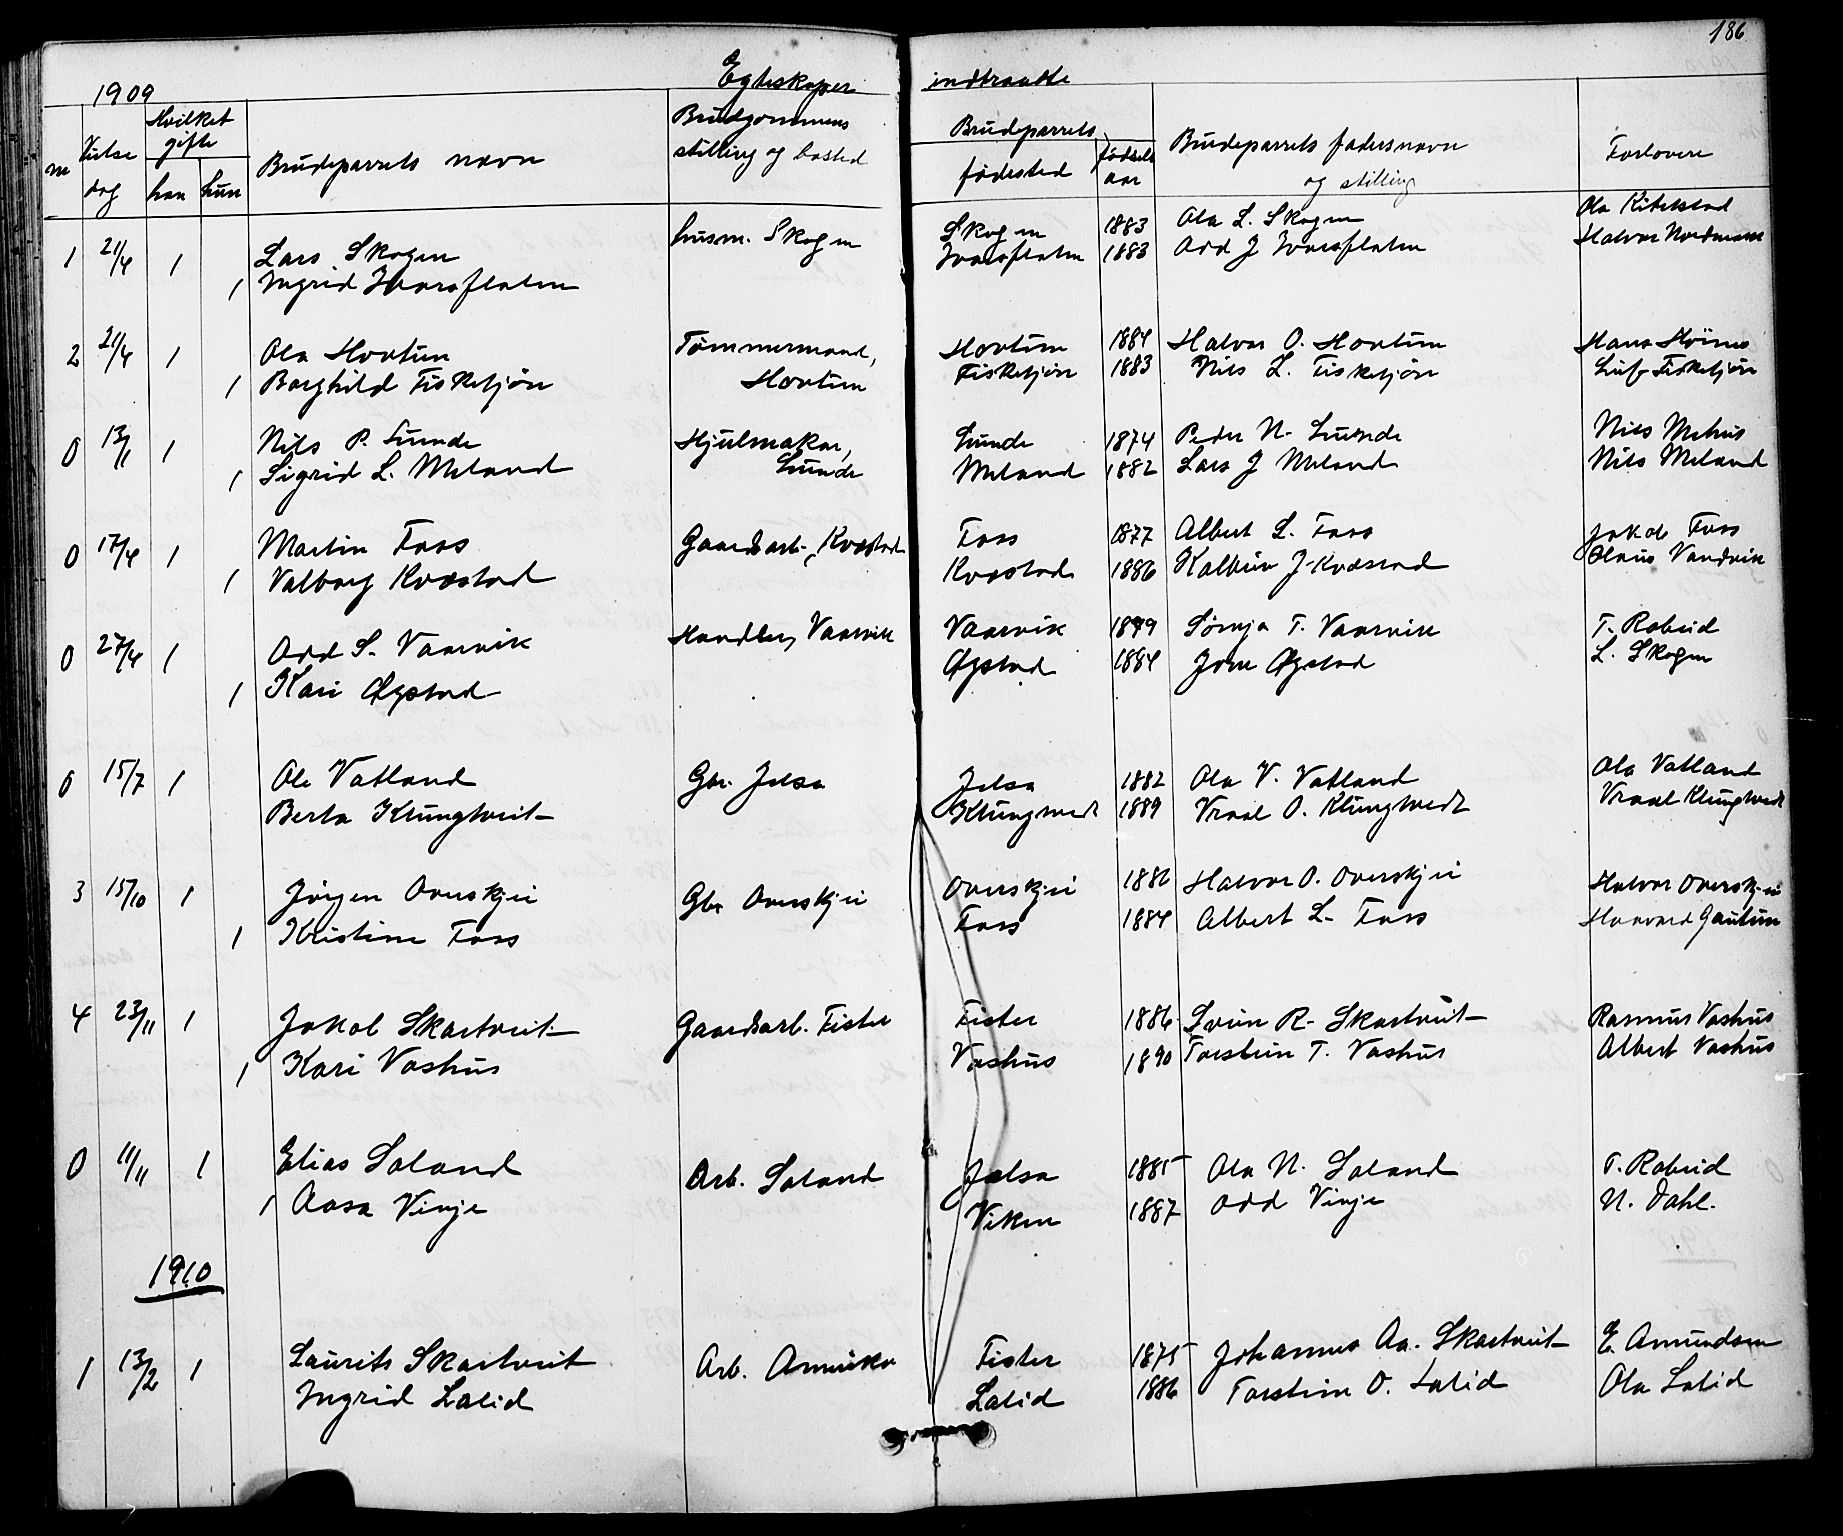 186
1909 Egteskaper indtraadte
nr Vielse dag Hvilket gifte han hun Brudeparrets navn Brudgommens stilling og bosted Brudeparrets fødested fødsels aar Brudeparrets fadersnavn og stilling Forlovere
1 21/4 1 Lars Skogen husm. Skogen Skogen 1883 Ola L. Skogen Ola Kibelstad
1 Ingrid Ivarsflaten Ivarsflaten 1883 Odd J Ivarsflaten Halvor
2 21/4 1 Ola Hovtun Tømmermand, Hovtun 1884 Halvor O. Hovtun Hans
1 Borghild Fisketjøn Hovtun Fisketjøn 1883 Nils L. Fisketjøn Leif Fisketjøn
0 13/1 1 Nils P. Lunde Hjulmaker, Lunde 1874 Peder N. Lunde Nils Mehus
1 Sigrid L. Meland Lunde Meland 1882 Lars J Meland Nils Meland
0 17/4 1 Martin Foss Gaardsarb., Kvæstad Foss 1877 Albert L. Foss Jakob Foss
1 Valborg Kvæstad Kvæstad 1886 Kolbein J. Kvæstad Olaus Vandvik
0 27/4 1 Odd S. Vaarvik Handler, Vaarvik Vaarvik 1879 Sønja T. Vaarvik T. Rabeid
1 Kari Øgstad Øgstad 1884 Jon Øgstad L. Skogen
0 15/7 1 Ole Vatland Gbr. Jelsa Jelsa 1882 Ola V. Vatland Ola Vatland
Berta Klungtveit Klungtvedt 1889 Vraal O. Klungtvedt Vraal Klungtvedt
3 15/10 1 Jørgen Overskjei Gbr Overskjei Overskjei 1886 Halvor O. Overskjei Halvor Overskjei
1 Kristine Foss Foss 1884 Albert L. Foss Haavard Gautun
4 23/11 1 Jakob Skartveit Gaardsarb. Fister Fister 1886 Svein R. Skartveit Rasmus Vashus
1 Kari Vashus Vashus 1890 Torstein T. Vashus Albert Vashus
0 11/11 1 Elias Saland Arb. Saland Jelsa 1885 Ola N. Saland T. Rabeid
1 Aasa Vinje Viken 1887 Odd Vinje N. Dahl.
1910
1 13/2 1 Laurits Skartveit Arb. Amerika Fister 1875 Johannes Aa. Skartveit E. Amundsen
Ingrid Lalid Lalid 1886 Torstein O. Lalid Ola Lalid